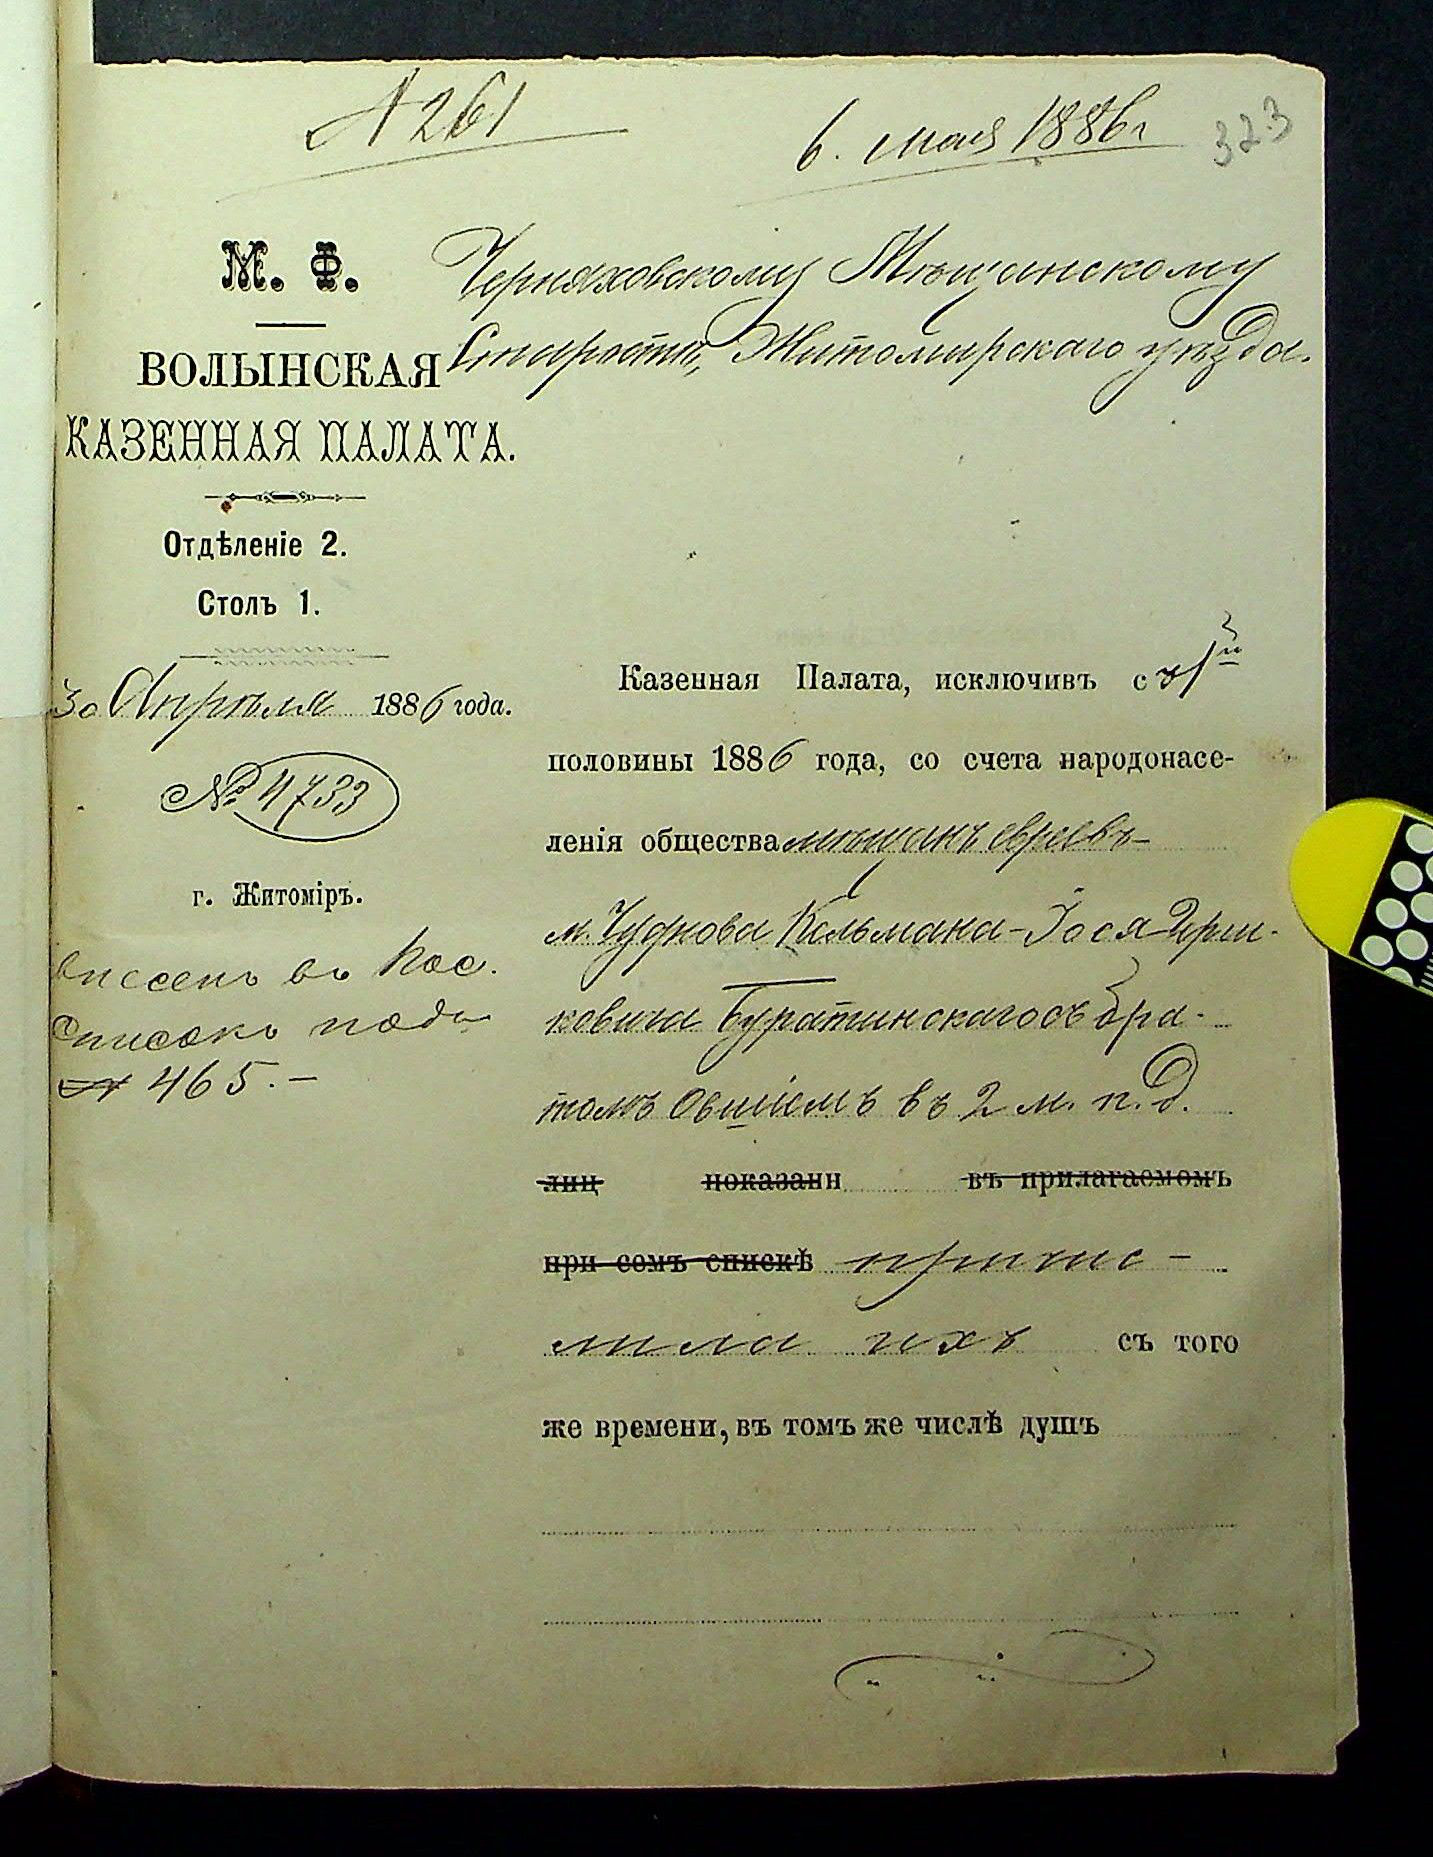 № 261
6. мая 1886 г
323
М. Ф.
ВОЛЫНСКАЯ
КАЗЕННАЯ ПАЛАТА.
Отдѣленіе 2.
Столъ 1.
30 Апрѣля 1886 года.
№ 4733
г. Житоміръ.
внесенъ въ
списокъ подъ
№ 465.-
Черняховскому Мѣщанскому
Старостѣ, Житомирскаго уѣзда.
Казенная Палата, исключивъ с 1й
половины 1886 года, со счета народонасе-
ленія общества мѣщанъ евреевъ
м. Чуднова Кельмана-Іося Герш-
ковича Буратинскаго съ бра-
томъ Овшіемъ въ 2 м. п. д.
лиц показанн въ прилагаемомъ
при семъ спискѣ причис-
лила ихъ съ того
же времени, въ томъ же числѣ душъ